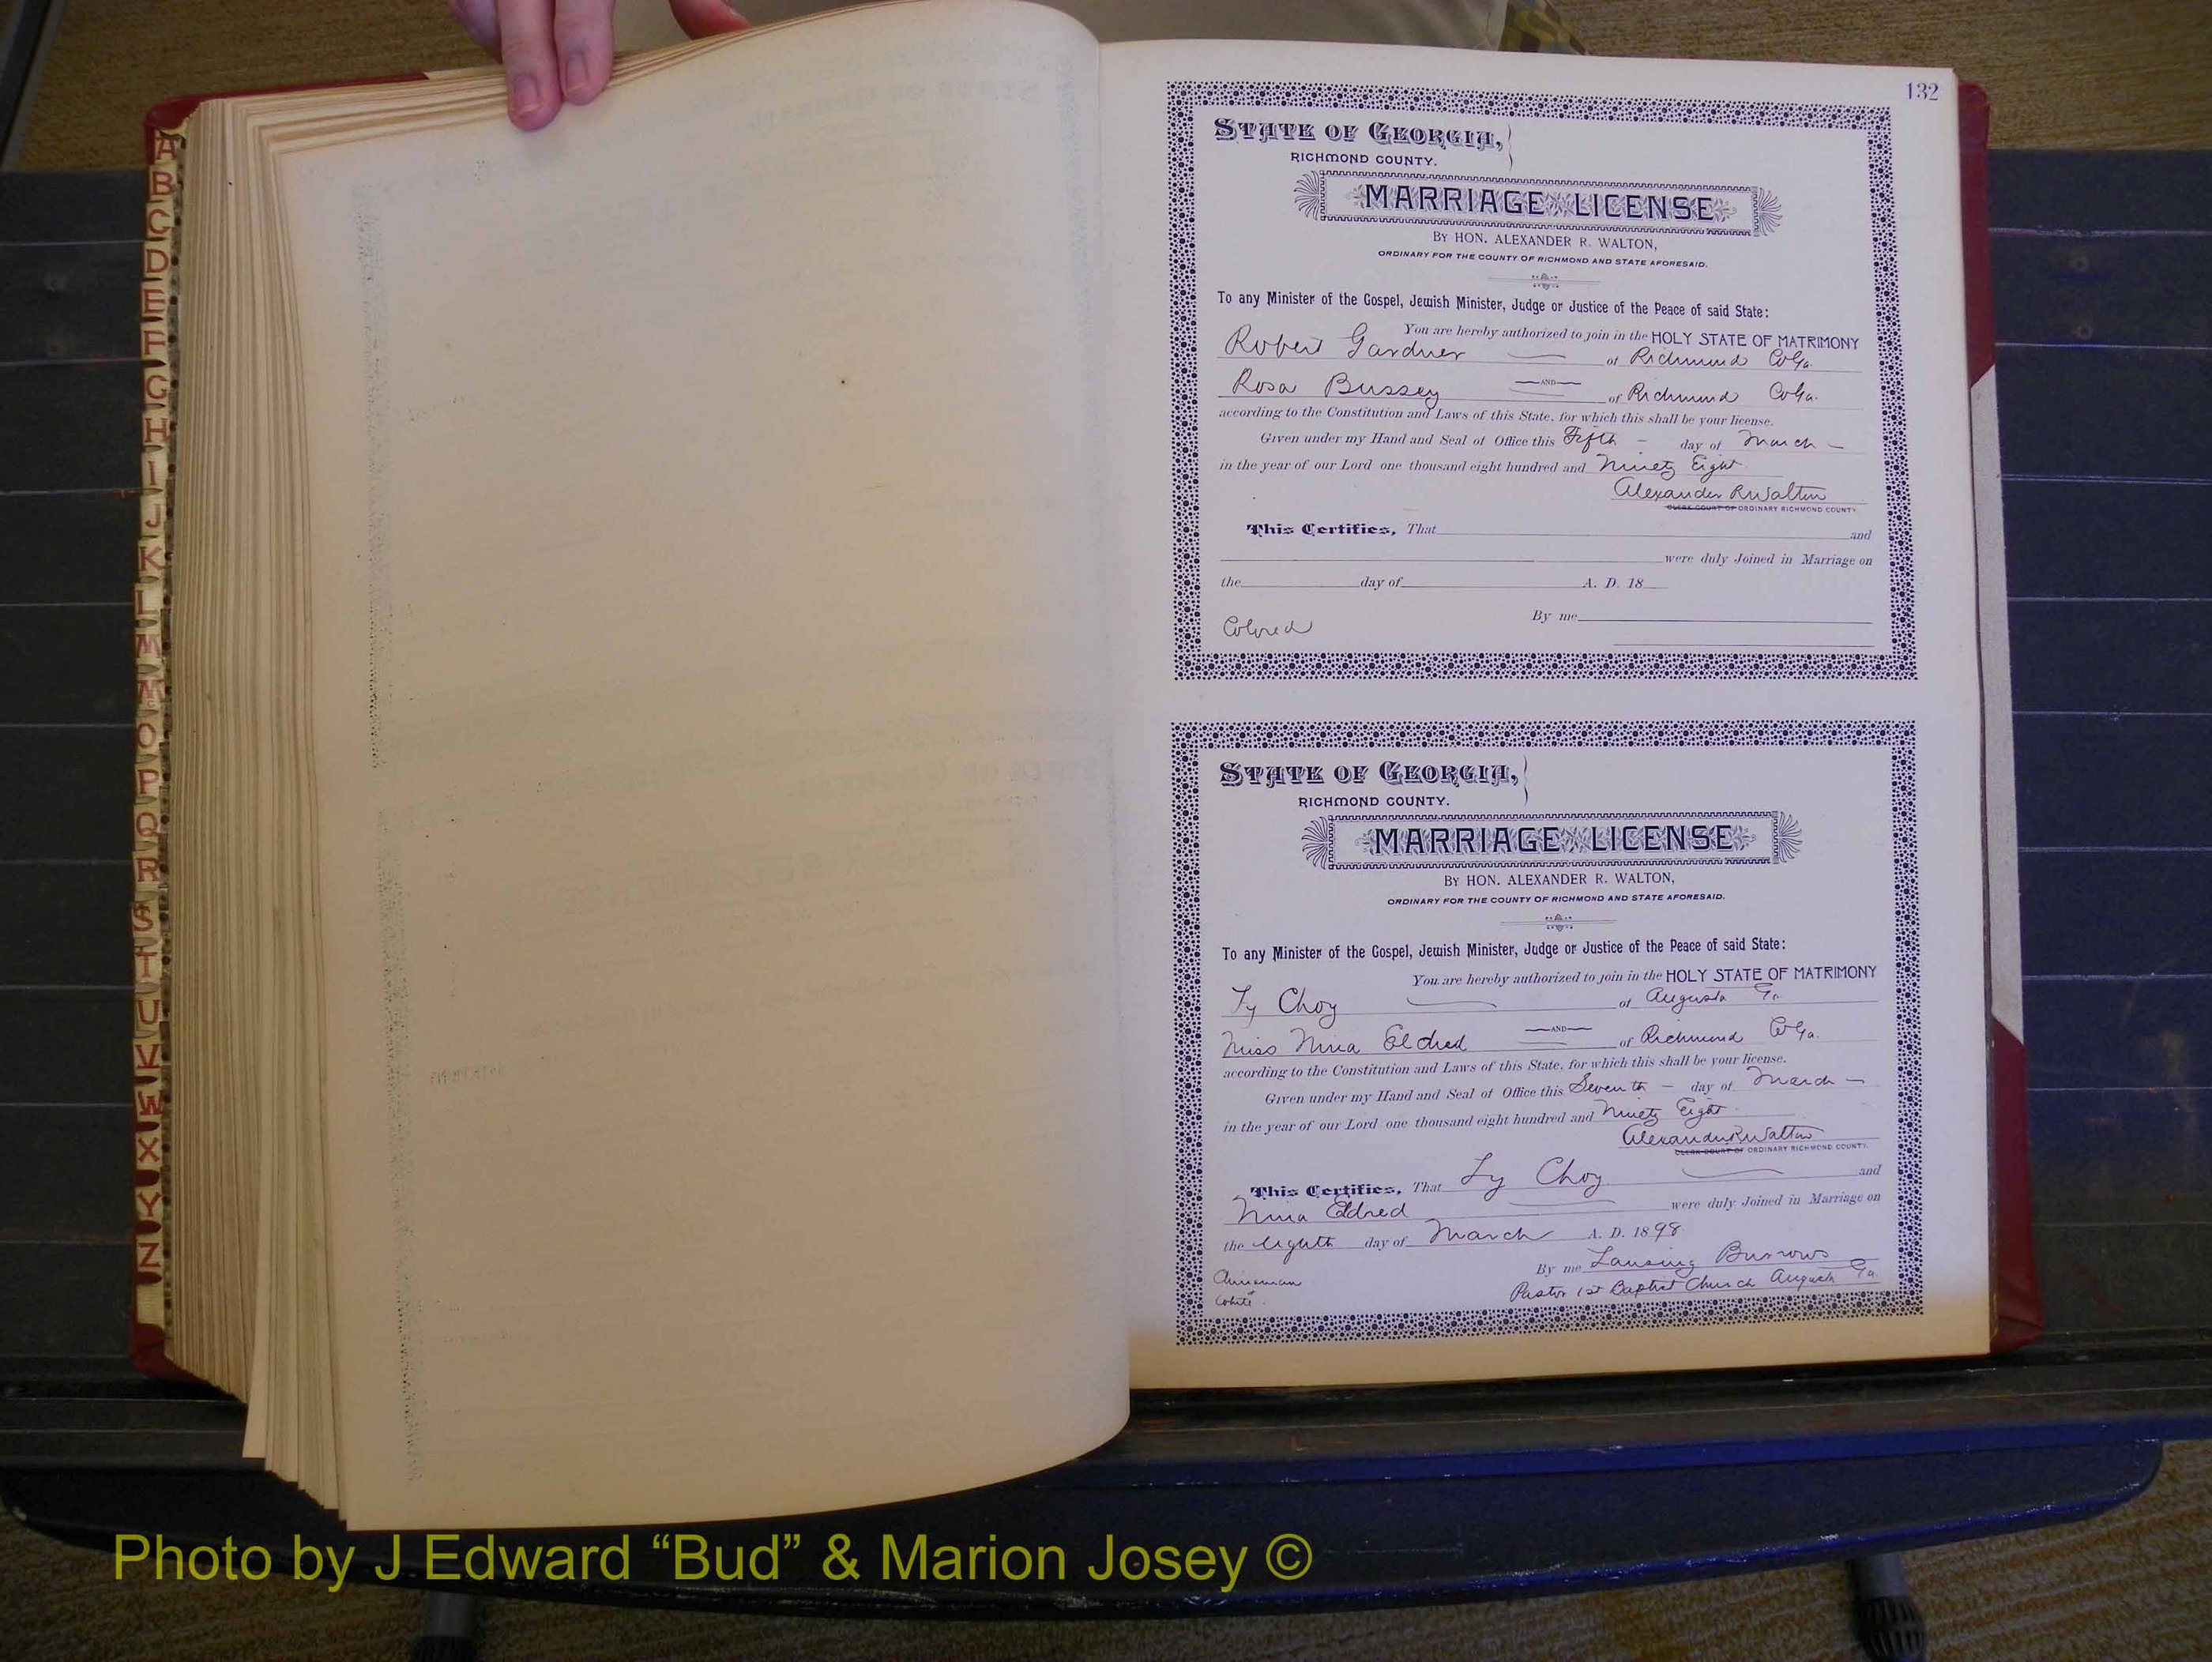 A
B
C
D
E
F
G
H
I
J
K
L
M
Mc
O
P
Q
R
S
T
U
V
W
X
Y
Z
132
STATE OF GEORGIA,
RICHMOND COUNTY.
MARRIAGE LICENSE
BY HON. ALEXANDER R. WALTON,
ORDINARY FOR THE COUNTY OF RICHMOND AND STATE AFORESAID.
To any Minister of the Gospel, Jewish Minister, Judge or Justice of the Peace of said State:
You are hereby authorized to join in the HOLY STATE OF MATRIMONY
Robert Gardner of Richmond Co Ga.
AND
Rosa Bussey of Richmond Co Ga.
according to the Constitution and Laws of this State, for which this shall be your license.
Given under my Hand and Seal of Office this Fifth - day of March -
in the year of our Lord one thousand eight hundred and Ninety Eight
Alexander R Walton
CLERK COURT OF ORDINARY RICHMOND COUNTY.
This Certifies, That and
were duly Joined in Marriage on
the day of A. D. 18
By me
Colored
STATE OF GEORGIA,
RICHMOND COUNTY.
MARRIAGE LICENSE
BY HON. ALEXANDER R. WALTON,
ORDINARY FOR THE COUNTY OF RICHMOND AND STATE AFORESAID.
To any Minister of the Gospel, Jewish Minister, Judge or Justice of the Peace of said State:
You are hereby authorized to join in the HOLY STATE OF MATRIMONY
Choy of Augusta Ga.
AND
Miss Nina Eldred of Richmond Co Ga.
according to the Constitution and Laws of this State, for which this shall be your license.
Given under my Hand and Seal of Office this Seventh - day of March -
in the year of our Lord one thousand eight hundred and Ninety Eight
Alexander R Walton
CLERK COURT OF ORDINARY RICHMOND COUNTY.
This Certifies, That Choy and
Nina Eldred were duly Joined in Marriage on
the eighth day of March A. D. 1898
By me Lansing Burrows
Pastor 1st Baptist Church Augusta Ga.
Chinaman
&
White.
Photo by J Edward “Bud” & Marion Josey ©